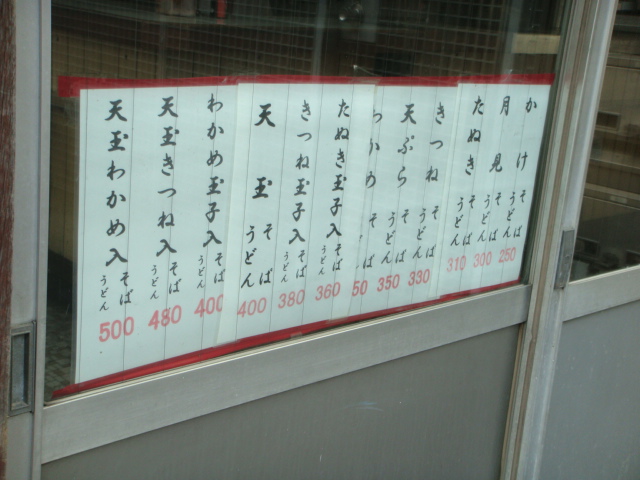 かけそばうどん 250
月見そばうどん 300
たぬきそばうどん 310
きつねそばうどん 330
天ぷらそばうどん 350
わかめそば 50
たぬき玉子入そばうどん 360
きつね玉子入そばうどん 380
天玉そばうどん 400
わかめ玉子入そばうどん 400
天玉きつね入そばうどん 480
天玉わかめ入そばうどん 500